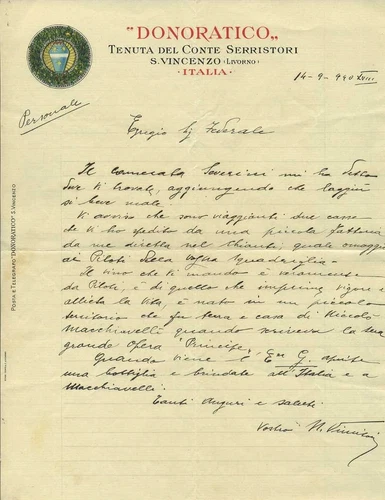 "DONORATICO"
TENUTA DEL CONTE SERRISTORI
S. VINCENZO (LIVORNO)
· ITALIA ·
14-9-940 XVIII
Personale
POSTA E TELEGRAFO "DONORATICO" S. VINCENZO
Egregio Sig Federale
Il camerata Severini mi ha detto
dove vi trovate, aggiungendo che laggiù
si beve male.
Vi avviso che sono viaggianti due casse
che vi ho spedito da una piccola fattoria
da me diretta nel Chianti, quale omaggio
ai Piloti della vostra Squadriglia -
Il vino che vi mando è veramente
da Piloti, è di quello che imprime vigore e
allieta la vita, è nato in un piccolo
territorio che fu terra e casa di Nicolò
Macchiavelli quando scriveva la sua
grande opera "Principe".
Quando viene l' G. aprite
una bottiglia e brindate all'Italia e a
Macchiavelli.
Tanti auguri e saluti.
Vostro N.